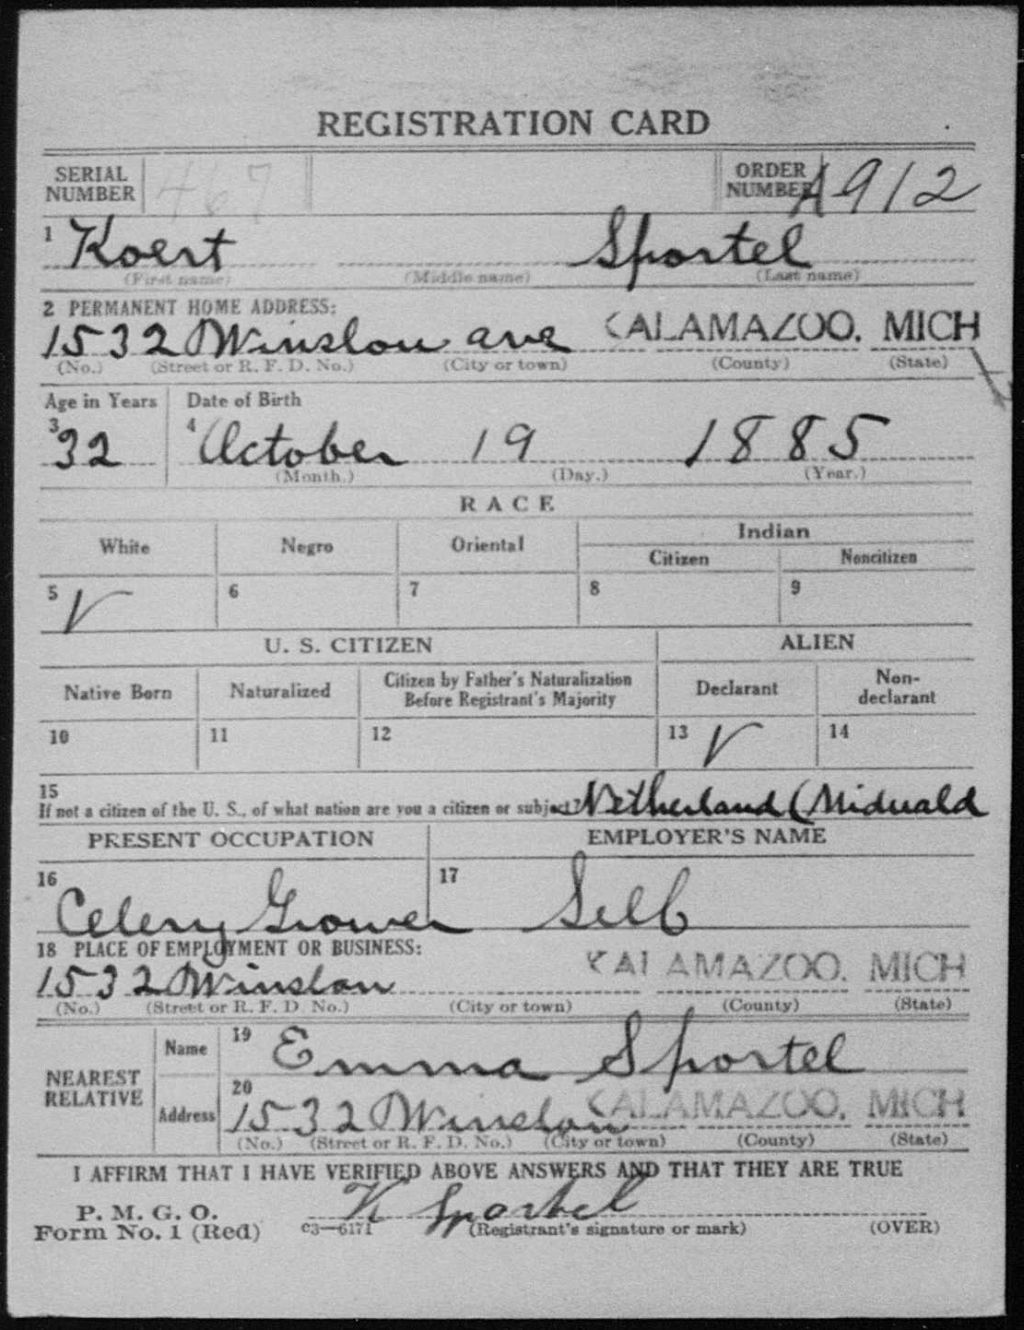 REGISTRATION CARD
SERIAL NUMBER 467 ORDER NUMBER A912
1 Koert Sportel
(First name) (Middle name) (Last name)
2 PERMANENT HOME ADDRESS:
1532 Winslow ave KALAMAZOO, MICH
(No.) (Street or R. F. D. No.) (City or town) (County) (State)
Age in Years Date of Birth
3 32 4 October 19 1885
(Month.) (Day.) (Year.)
RACE
White Negro Oriental Indian
Citizen Noncitizen
5 V 6 7 8 9
U. S. CITIZEN ALIEN
Native Born Naturalized Citizen by Father's Naturalization Before Registrant's Majority Declarant Non-declarant
10 11 12 13 V 14
15
If not a citizen of the U. S., of what nation are you a citizen or subject? Netherland (Miduald
PRESENT OCCUPATION EMPLOYER'S NAME
16 Celery Grower 17 Self
18 PLACE OF EMPLOYMENT OR BUSINESS:
1532 Winslow KALAMAZOO, MICH
(No.) (Street or R. F. D. No.) (City or town) (County) (State)
NEAREST RELATIVE Name 19 Emma Sportel
Address 20 1532 Winslow KALAMAZOO, MICH
(No.) (Street or R. F. D. No.) (City or town) (County) (State)
I AFFIRM THAT I HAVE VERIFIED ABOVE ANSWERS AND THAT THEY ARE TRUE
P. M. G. O. K Sportel
Form No. 1 (Red) C3—6171 (Registrant's signature or mark) (OVER)